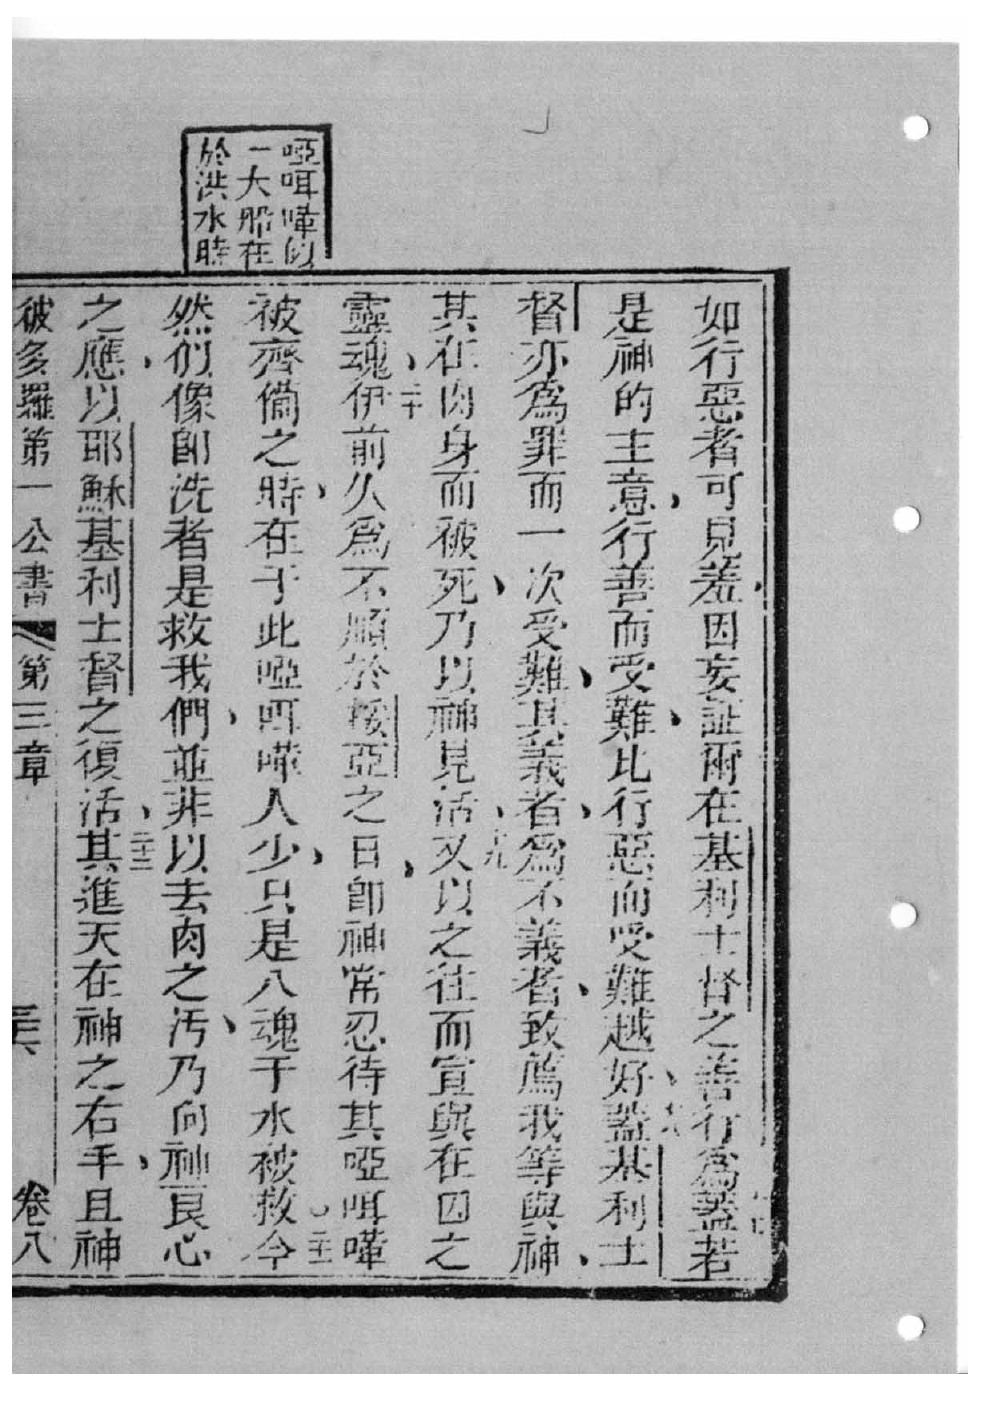 啞咡嘩似
一大船在
於洪水時
如行惡者可見羞因妄証爾在基利士督之善行為蓋若
十七
是神的主意行善而受難比行惡而受難越好蓋基利士
十八
督亦為罪而一次受難其義者為不義者致薦我等與神
其在肉身而被死乃以神見活又以之往而宣與在囚之
十九
靈魂伊前久為不順於挼亞之日卽神常忍待其啞咡嘩
二十
被齊備之時在于此啞咡嘩人少只是八魂于水被救今
二十一
然們像卽洗者是救我們並非以去肉之汚乃向神艮心
之應以耶穌基利士督之復活其進天在神之右手且神
二十二
彼多羅第一公書 第三章 卷八